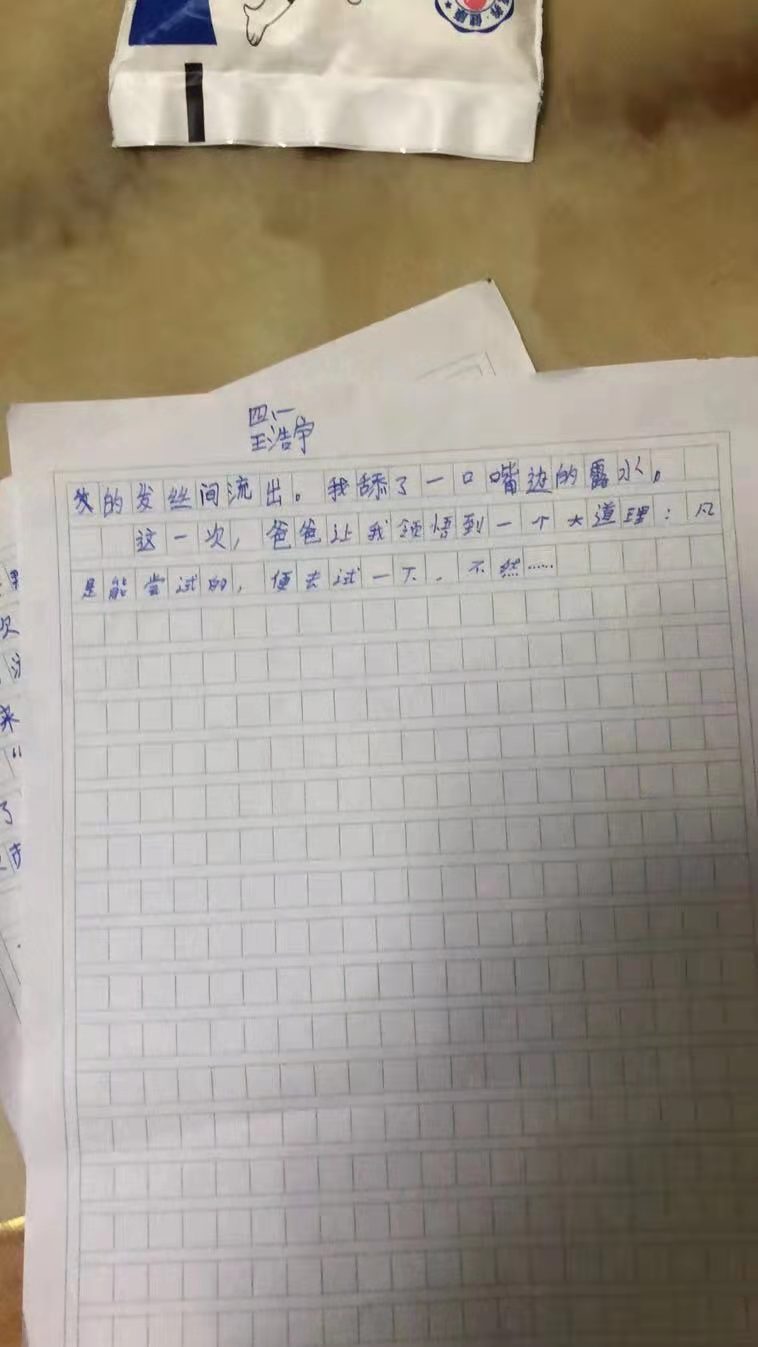 四、一
王浩宇
的发丝间流出。我舔了一口嘴边的露水。
这一次,爸爸让我领悟到一个大道理:凡
是能尝试的,便去试一下。不然……
次
来
“
了
健康